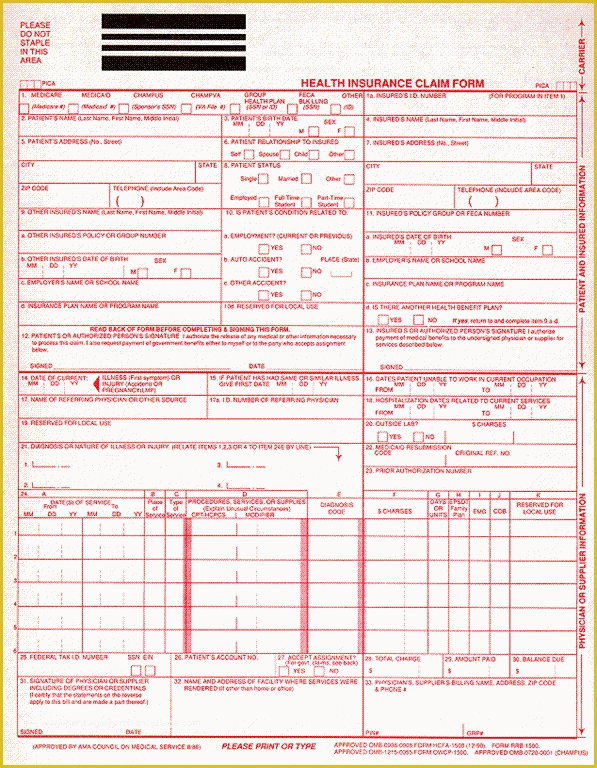 PLEASE
DO NOT
STAPLE
IN THIS
AREA
CARRIER
PICA
HEALTH INSURANCE CLAIM FORM
PICA
1. MEDICARE MEDICAID CHAMPUS CHAMPVA GROUP HEALTH PLAN FECA BLK LUNG OTHER
(Medicare #) (Medicaid #) (Sponsor's SSN) (VA File #) (SSN or ID) (SSN) (ID)
1a. INSURED'S I.D. NUMBER (FOR PROGRAM IN ITEM 1)
2. PATIENT'S NAME (Last Name, First Name, Middle Initial)
3. PATIENT'S BIRTH DATE
MM DD YY
SEX
M F
4. INSURED'S NAME (Last Name, First Name, Middle Initial)
5. PATIENT'S ADDRESS (No., Street)
6. PATIENT RELATIONSHIP TO INSURED
Self Spouse Child Other
7. INSURED'S ADDRESS (No., Street)
CITY STATE
8. PATIENT STATUS
Single Married Other
CITY STATE
ZIP CODE TELEPHONE (Include Area Code)
( )
Employed Full-Time Student Part-Time Student
ZIP CODE TELEPHONE (INCLUDE AREA CODE)
( )
9. OTHER INSURED'S NAME (Last Name, First Name, Middle Initial)
10. IS PATIENT'S CONDITION RELATED TO:
11. INSURED'S POLICY GROUP OR FECA NUMBER
a. OTHER INSURED'S POLICY OR GROUP NUMBER
a. EMPLOYMENT? (CURRENT OR PREVIOUS)
YES NO
a. INSURED'S DATE OF BIRTH
MM DD YY
SEX
M F
b. OTHER INSURED'S DATE OF BIRTH
MM DD YY
SEX
M F
b. AUTO ACCIDENT? PLACE (State)
YES NO
b. EMPLOYER'S NAME OR SCHOOL NAME
c. EMPLOYER'S NAME OR SCHOOL NAME
c. OTHER ACCIDENT?
YES NO
c. INSURANCE PLAN NAME OR PROGRAM NAME
d. INSURANCE PLAN NAME OR PROGRAM NAME
10d. RESERVED FOR LOCAL USE
d. IS THERE ANOTHER HEALTH BENEFIT PLAN?
YES NO If yes, return to and complete item 9 a-d.
PATIENT AND INSURED INFORMATION
READ BACK OF FORM BEFORE COMPLETING & SIGNING THIS FORM.
12. PATIENT'S OR AUTHORIZED PERSON'S SIGNATURE I authorize the release of any medical or other information necessary
to process this claim. I also request payment of government benefits either to myself or to the party who accepts assignment
below.
SIGNED DATE
13. INSURED'S OR AUTHORIZED PERSON'S SIGNATURE I authorize
payment of medical benefits to the undersigned physician or supplier for
services described below.
SIGNED
14. DATE OF CURRENT:
MM DD YY
ILLNESS (First symptom) OR
INJURY (Accident) OR
PREGNANCY(LMP)
15. IF PATIENT HAS HAD SAME OR SIMILAR ILLNESS.
GIVE FIRST DATE MM DD YY
16. DATES PATIENT UNABLE TO WORK IN CURRENT OCCUPATION
MM DD YY MM DD YY
FROM TO
17. NAME OF REFERRING PHYSICIAN OR OTHER SOURCE
17a. I.D. NUMBER OF REFERRING PHYSICIAN
18. HOSPITALIZATION DATES RELATED TO CURRENT SERVICES
MM DD YY MM DD YY
FROM TO
19. RESERVED FOR LOCAL USE
20. OUTSIDE LAB? $ CHARGES
YES NO
21. DIAGNOSIS OR NATURE OF ILLNESS OR INJURY. (RELATE ITEMS 1,2,3 OR 4 TO ITEM 24E BY LINE)
1. 3.
2. 4.
22. MEDICAID RESUBMISSION
CODE ORIGINAL REF. NO.
23. PRIOR AUTHORIZATION NUMBER
24. A B C D E F G H I J K
DATE(S) OF SERVICE
From To
MM DD YY MM DD YY
Place of Service
Type of Service
PROCEDURES, SERVICES, OR SUPPLIES
(Explain Unusual Circumstances)
CPT/HCPCS MODIFIER
DIAGNOSIS CODE
$ CHARGES
DAYS OR UNITS
EPSDT Family Plan
EMG
COB
RESERVED FOR LOCAL USE
1
2
3
4
5
6
PHYSICIAN OR SUPPLIER INFORMATION
25. FEDERAL TAX I.D. NUMBER SSN EIN
26. PATIENT'S ACCOUNT NO.
27. ACCEPT ASSIGNMENT?
(For govt. claims, see back)
YES NO
28. TOTAL CHARGE
$
29. AMOUNT PAID
$
30. BALANCE DUE
$
31. SIGNATURE OF PHYSICIAN OR SUPPLIER
INCLUDING DEGREES OR CREDENTIALS
(I certify that the statements on the reverse
apply to this bill and are made a part thereof.)
SIGNED DATE
32. NAME AND ADDRESS OF FACILITY WHERE SERVICES WERE
RENDERED (If other than home or office)
33. PHYSICIAN'S, SUPPLIER'S BILLING NAME, ADDRESS, ZIP CODE
& PHONE #
PIN# GRP#
(APPROVED BY AMA COUNCIL ON MEDICAL SERVICE 8/88)
PLEASE PRINT OR TYPE
APPROVED OMB-0938-0008 FORM HCFA-1500 (12-90), FORM RRB-1500,
APPROVED OMB-1215-0055 FORM OWCP-1500, APPROVED OMB-0720-0001 (CHAMPUS)